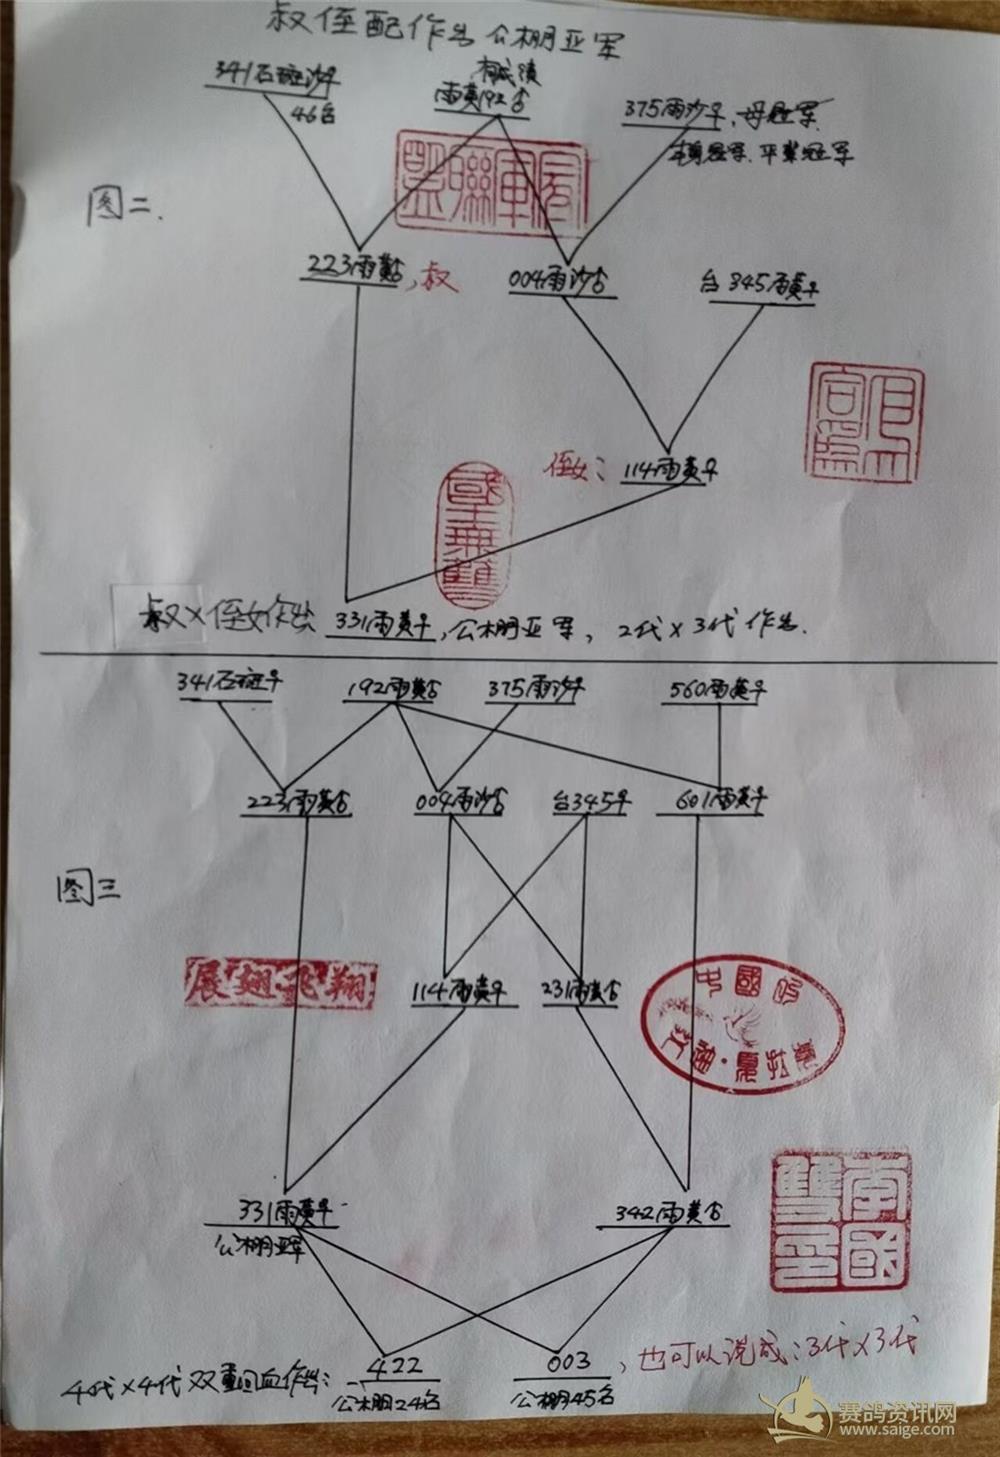 叔侄配作出公棚亚军
341石斑沙♀
46名
有成绩
雨黄192♂
375雨沙♀、母冠军、
本身冠军、平辈冠军
图二、
223雨黄♂,叔
004雨沙♂
台345雨黄♀
侄女:
114雨黄♀
國士無雙
叔×侄女作出331雨黄♀,公棚亚军,2代×3代作出.
341石斑♀
192雨黄♂
375雨沙♀
560雨黄♀
223雨黄♂
004雨沙♂
台345♀
601雨黄♀
图三
展翅飞翔
114雨黄♀
231雨黄♂
331雨黄♀
公棚亚军
342雨黄♂
4代×4代双重回血作出:
422
公棚24名
003
公棚45名
,也可以说成:3代×3代
赛鸽资讯网
www.saige.com